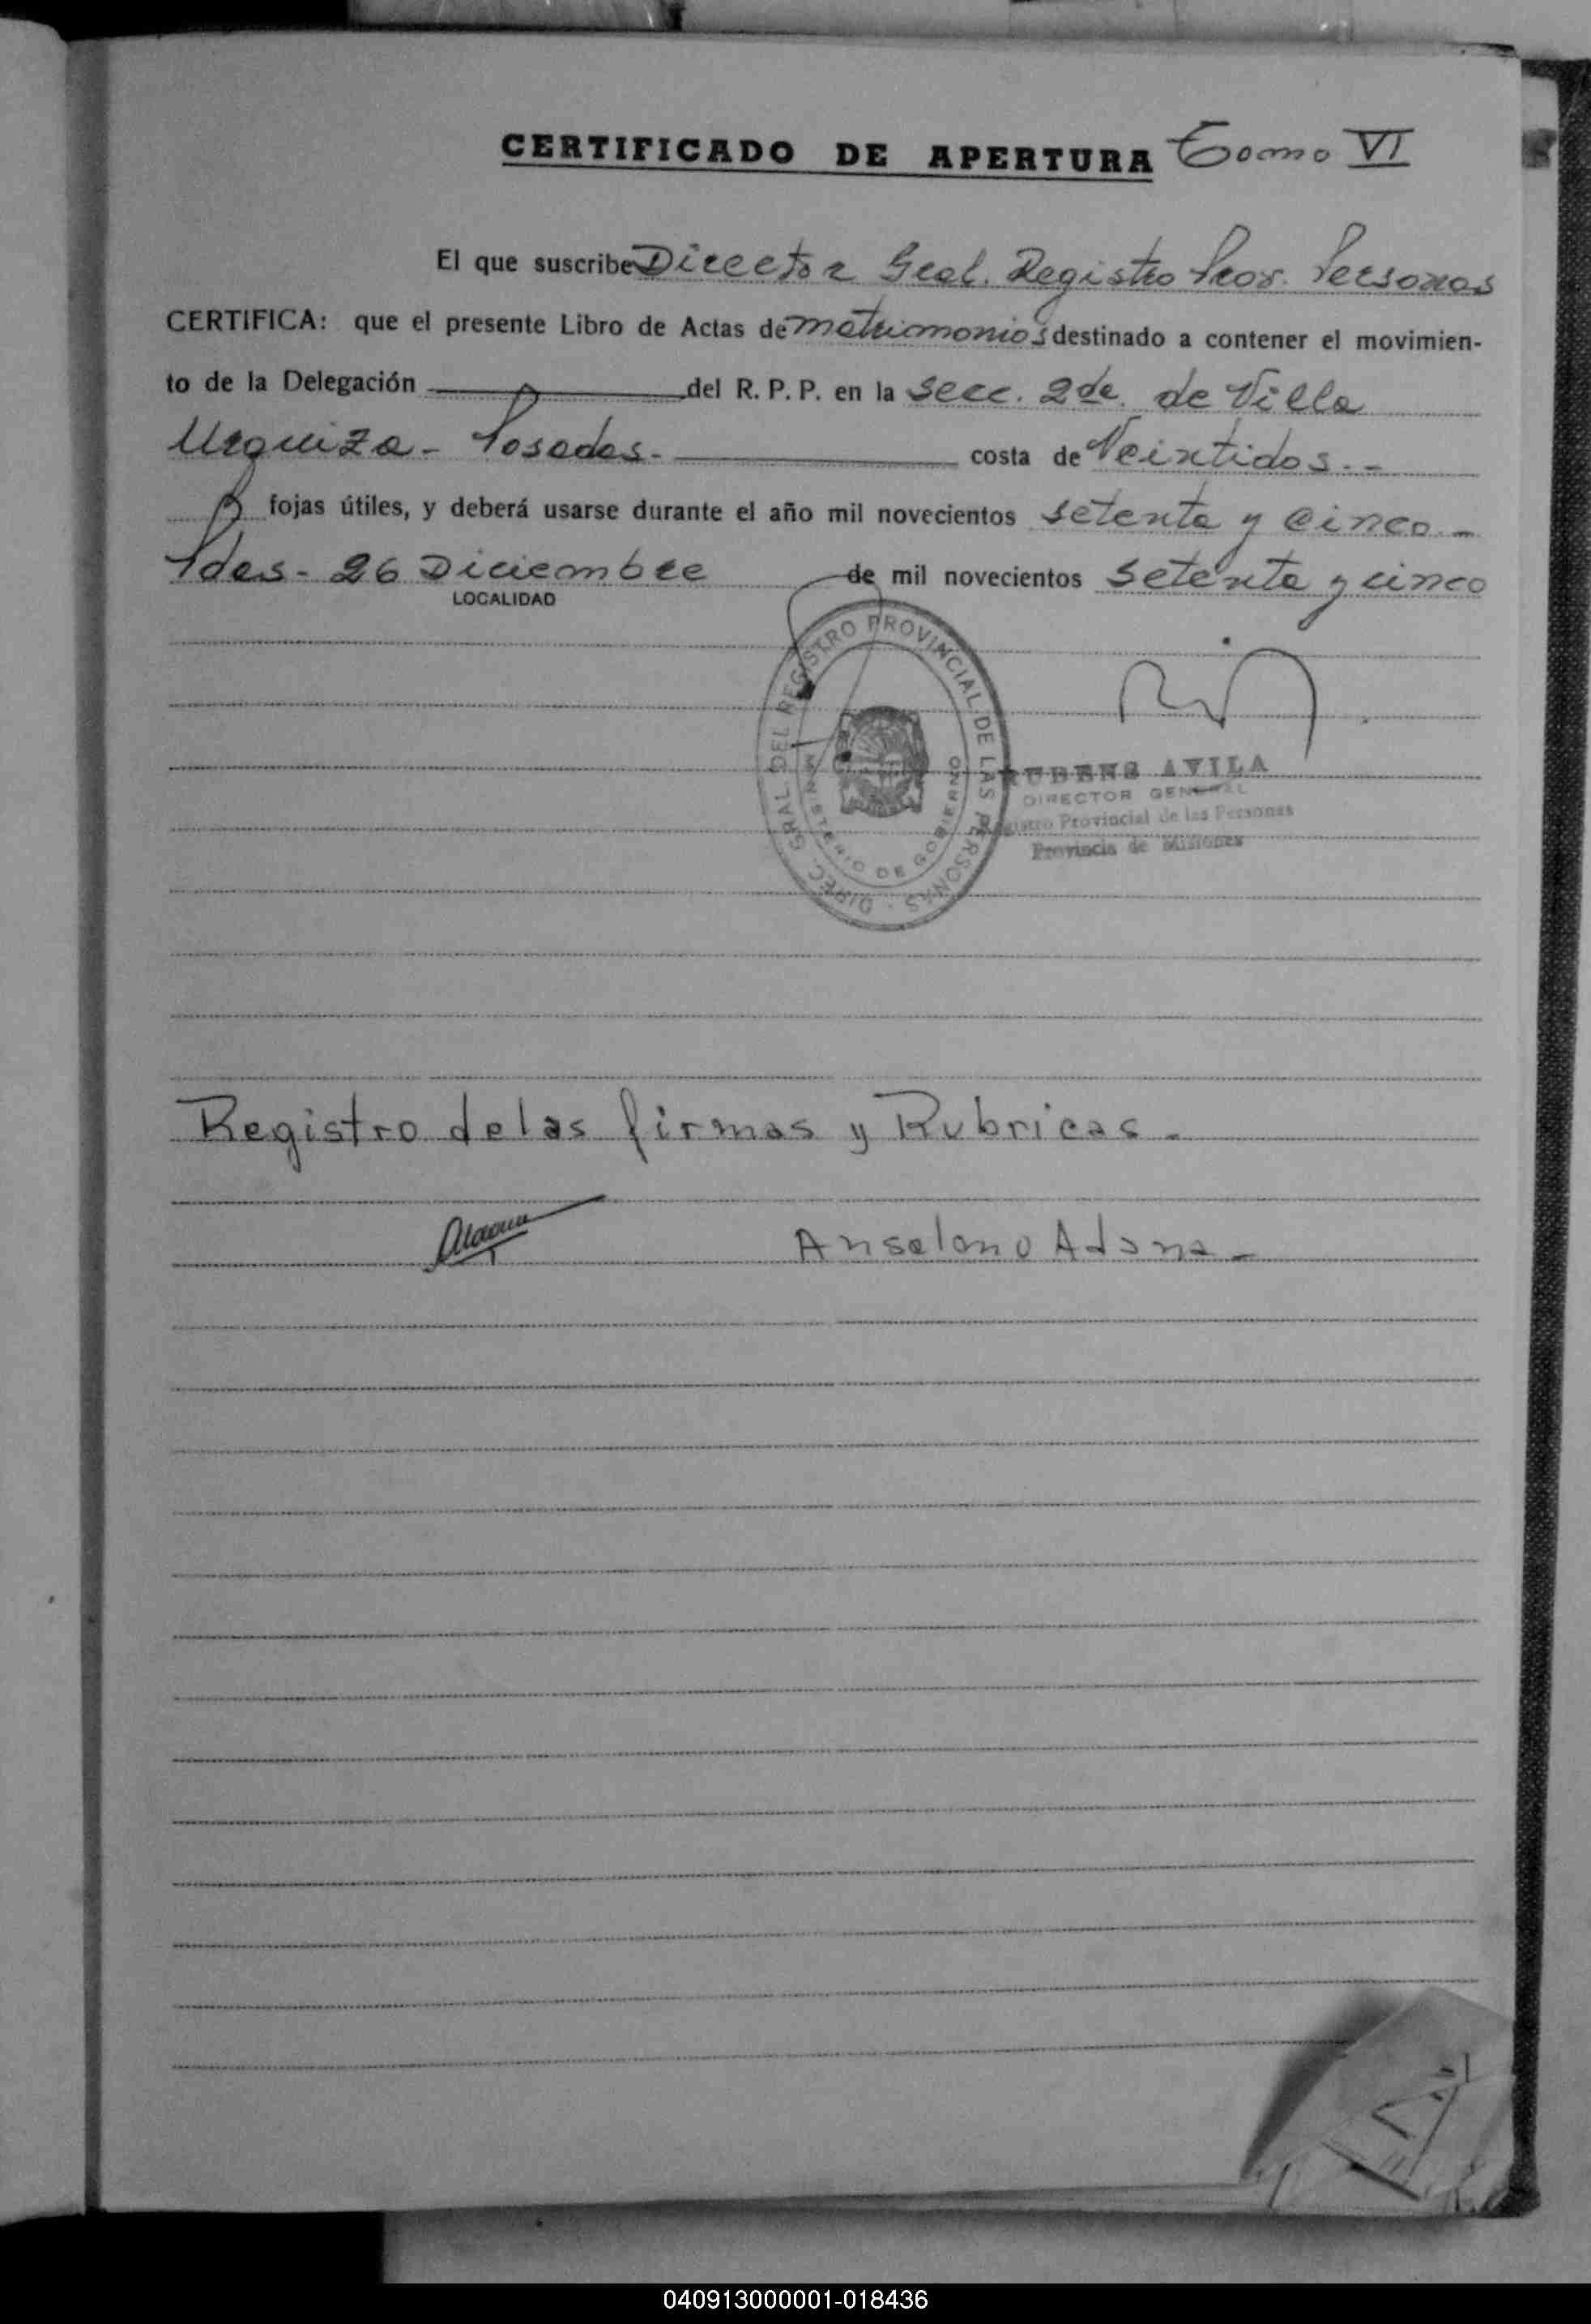 CERTIFICADO DE APERTURA Tomo VI
El que suscribe Director Gral. Registro Prov. Personas
CERTIFICA: que el presente Libro de Actas de matrimonios destinado a contener el movimien-
to de la Delegación del R. P. P. en la Secc. 2da. de Villa
Urquiza - Posadas. costa de Veintidos. -
fojas útiles, y deberá usarse durante el año mil novecientos setenta y cinco. -
Pdas - 26 Diciembre de mil novecientos setenta y cinco
LOCALIDAD
DIREC. GRAL. DEL REGISTRO PROVINCIAL DE LAS PERSONAS
MINISTERIO DE GOBIERNO
RUBENS AVILA
DIRECTOR GENERAL
Registro Provincial de las Personas
Provincia de Misiones
Registro de las firmas y Rubricas.
Anselmo Adana -
040913000001-018436